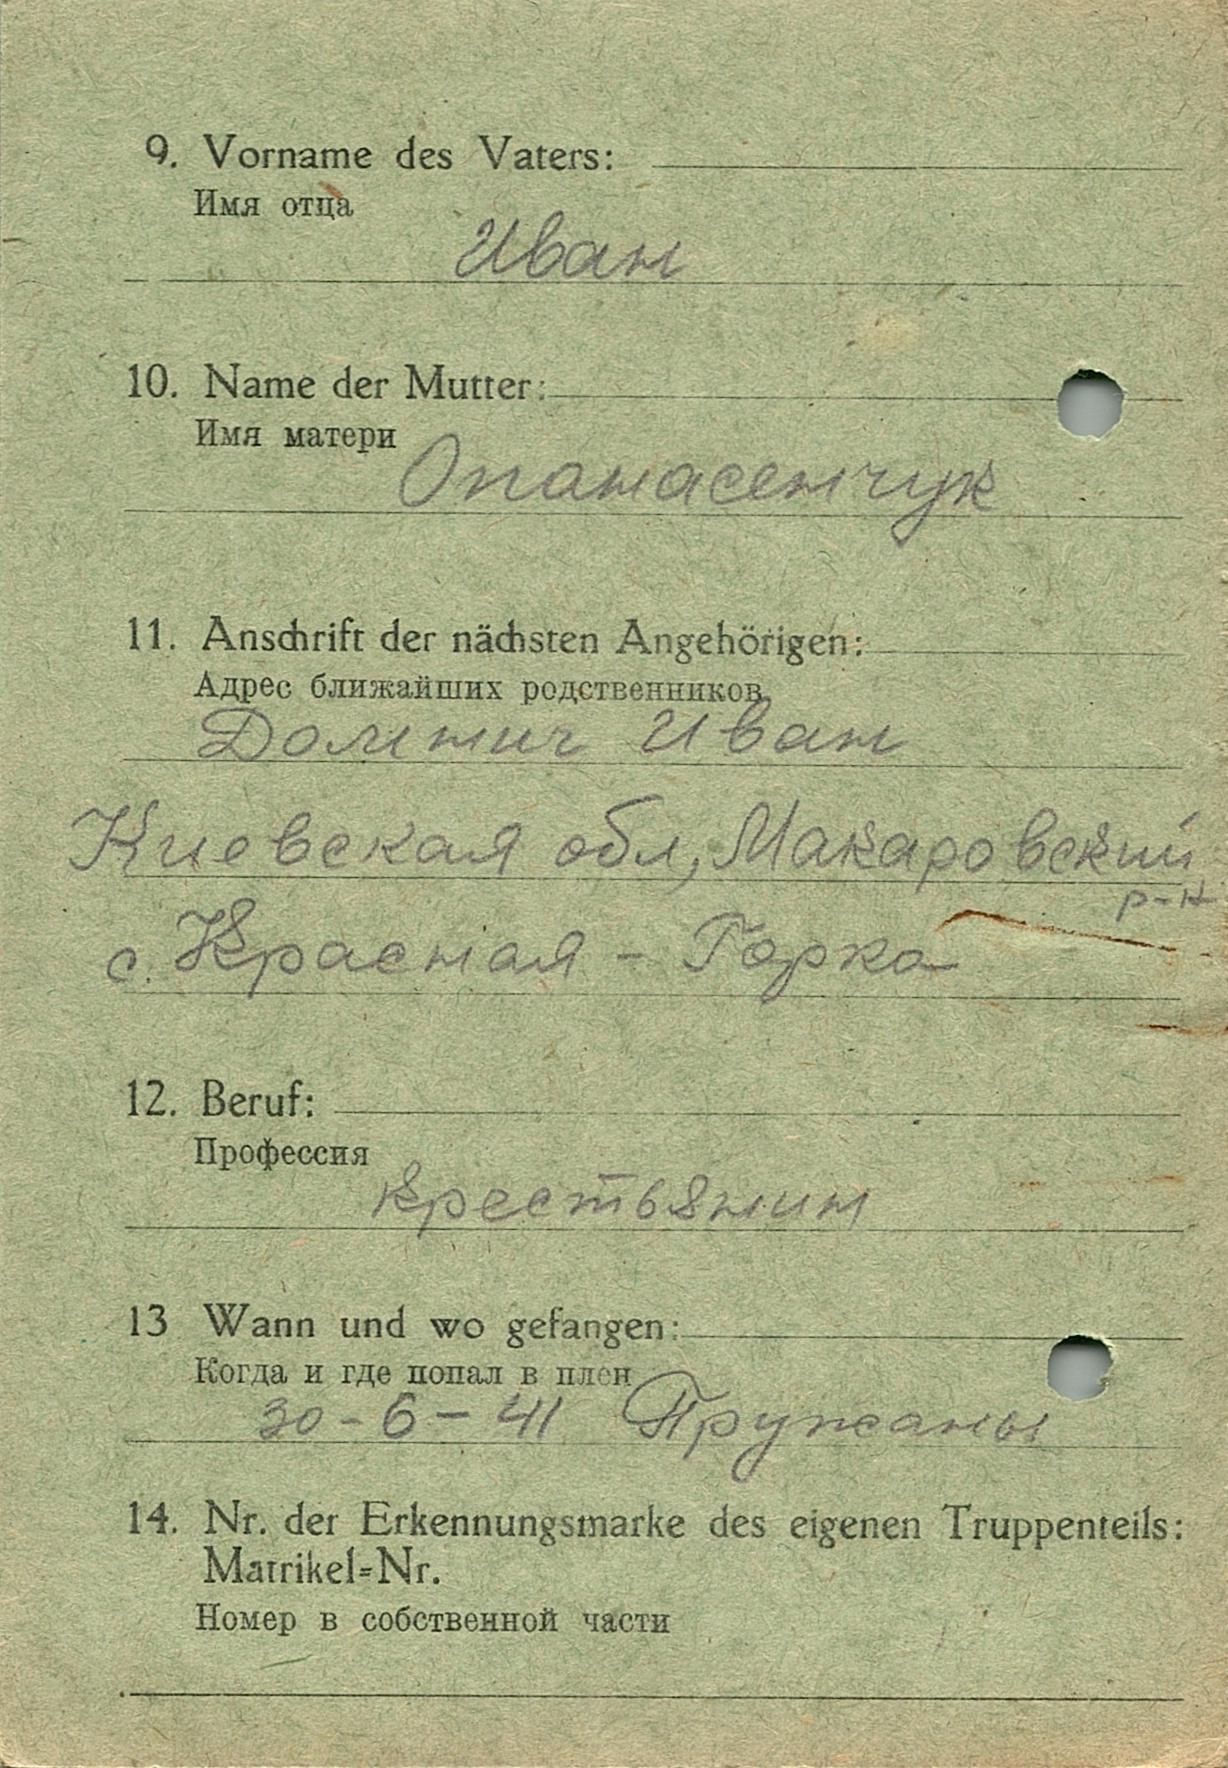 9. Vorname des Vaters:
Имя отца
Иван
10. Name der Mutter:
Имя матери
Опанасенчук
11. Anschrift der nächsten Angehörigen:
Адрес ближайших родственников
Иван
Киевская обл, Макаровский
р-н
с. Красная - Горка
12. Beruf:
Профессия
крестьянин
13 Wann und wo gefangen:
Когда и где попал в плен
30-6-41 Пружаны
14. Nr. der Erkennungsmarke des eigenen Truppenteils:
Matrikel=Nr.
Номер в собственной части